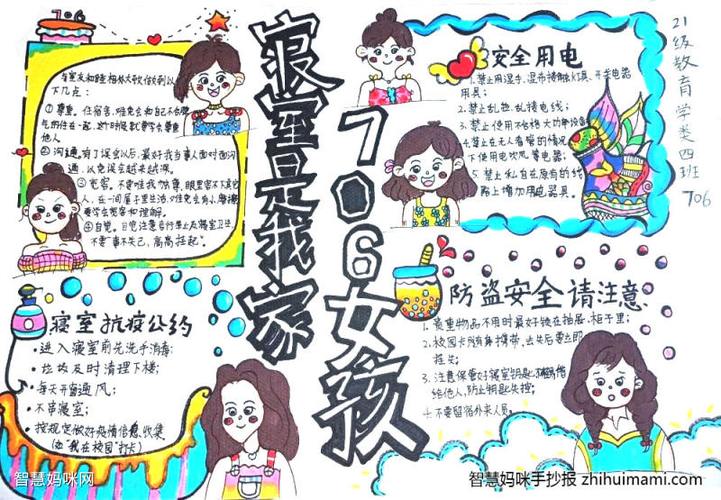 706
与室友和睦相处大家做到以
下几点:
① 尊重。住宿舍,难免会和自己不合脾
气的住在一起,这个时候就要学会尊重
他人。
② 沟通。有了误会以后,最好我当事人面对面沟
通,以免误会越来越深。
③ 宽容。不要唯我独尊,眼里容不下其它
人,在一间屋子里生活,难免会有小摩擦
要学会宽容和理解。
④ 自觉。自觉注意言行举止及寝室卫生
不要"事不关己,高高挂起"。
寝室是我家
706女孩
安全用电
1.禁止用湿手、湿布接触灯具、开关电器
用具;
2.禁止乱拉、乱接电线;
3.禁止使用不合格大功率设备
4.禁止在无人看管的情况
下使用电吹风等电器;
5.禁止私自在原有的线
路上增加用电器具。
21级教育学类四班
706
寝室抗疫公约
·进入寝室前先洗手消毒;
·垃圾及时清理下楼;
·每天开窗通风;
·不串寝室;
·按规定做好疫情信息收集
(如"我在校园"打卡)
防盗安全请注意
1.贵重物品不用时最好锁在抽屉、柜子里;
2.校园卡等随身携带,丢失后要立即
挂失;
3.注意保管好寝室钥匙,不
给他人,防止钥匙失控;
4.不要留宿外来人员。
智慧妈咪网
智慧妈咪手抄报 zhihuimami.com